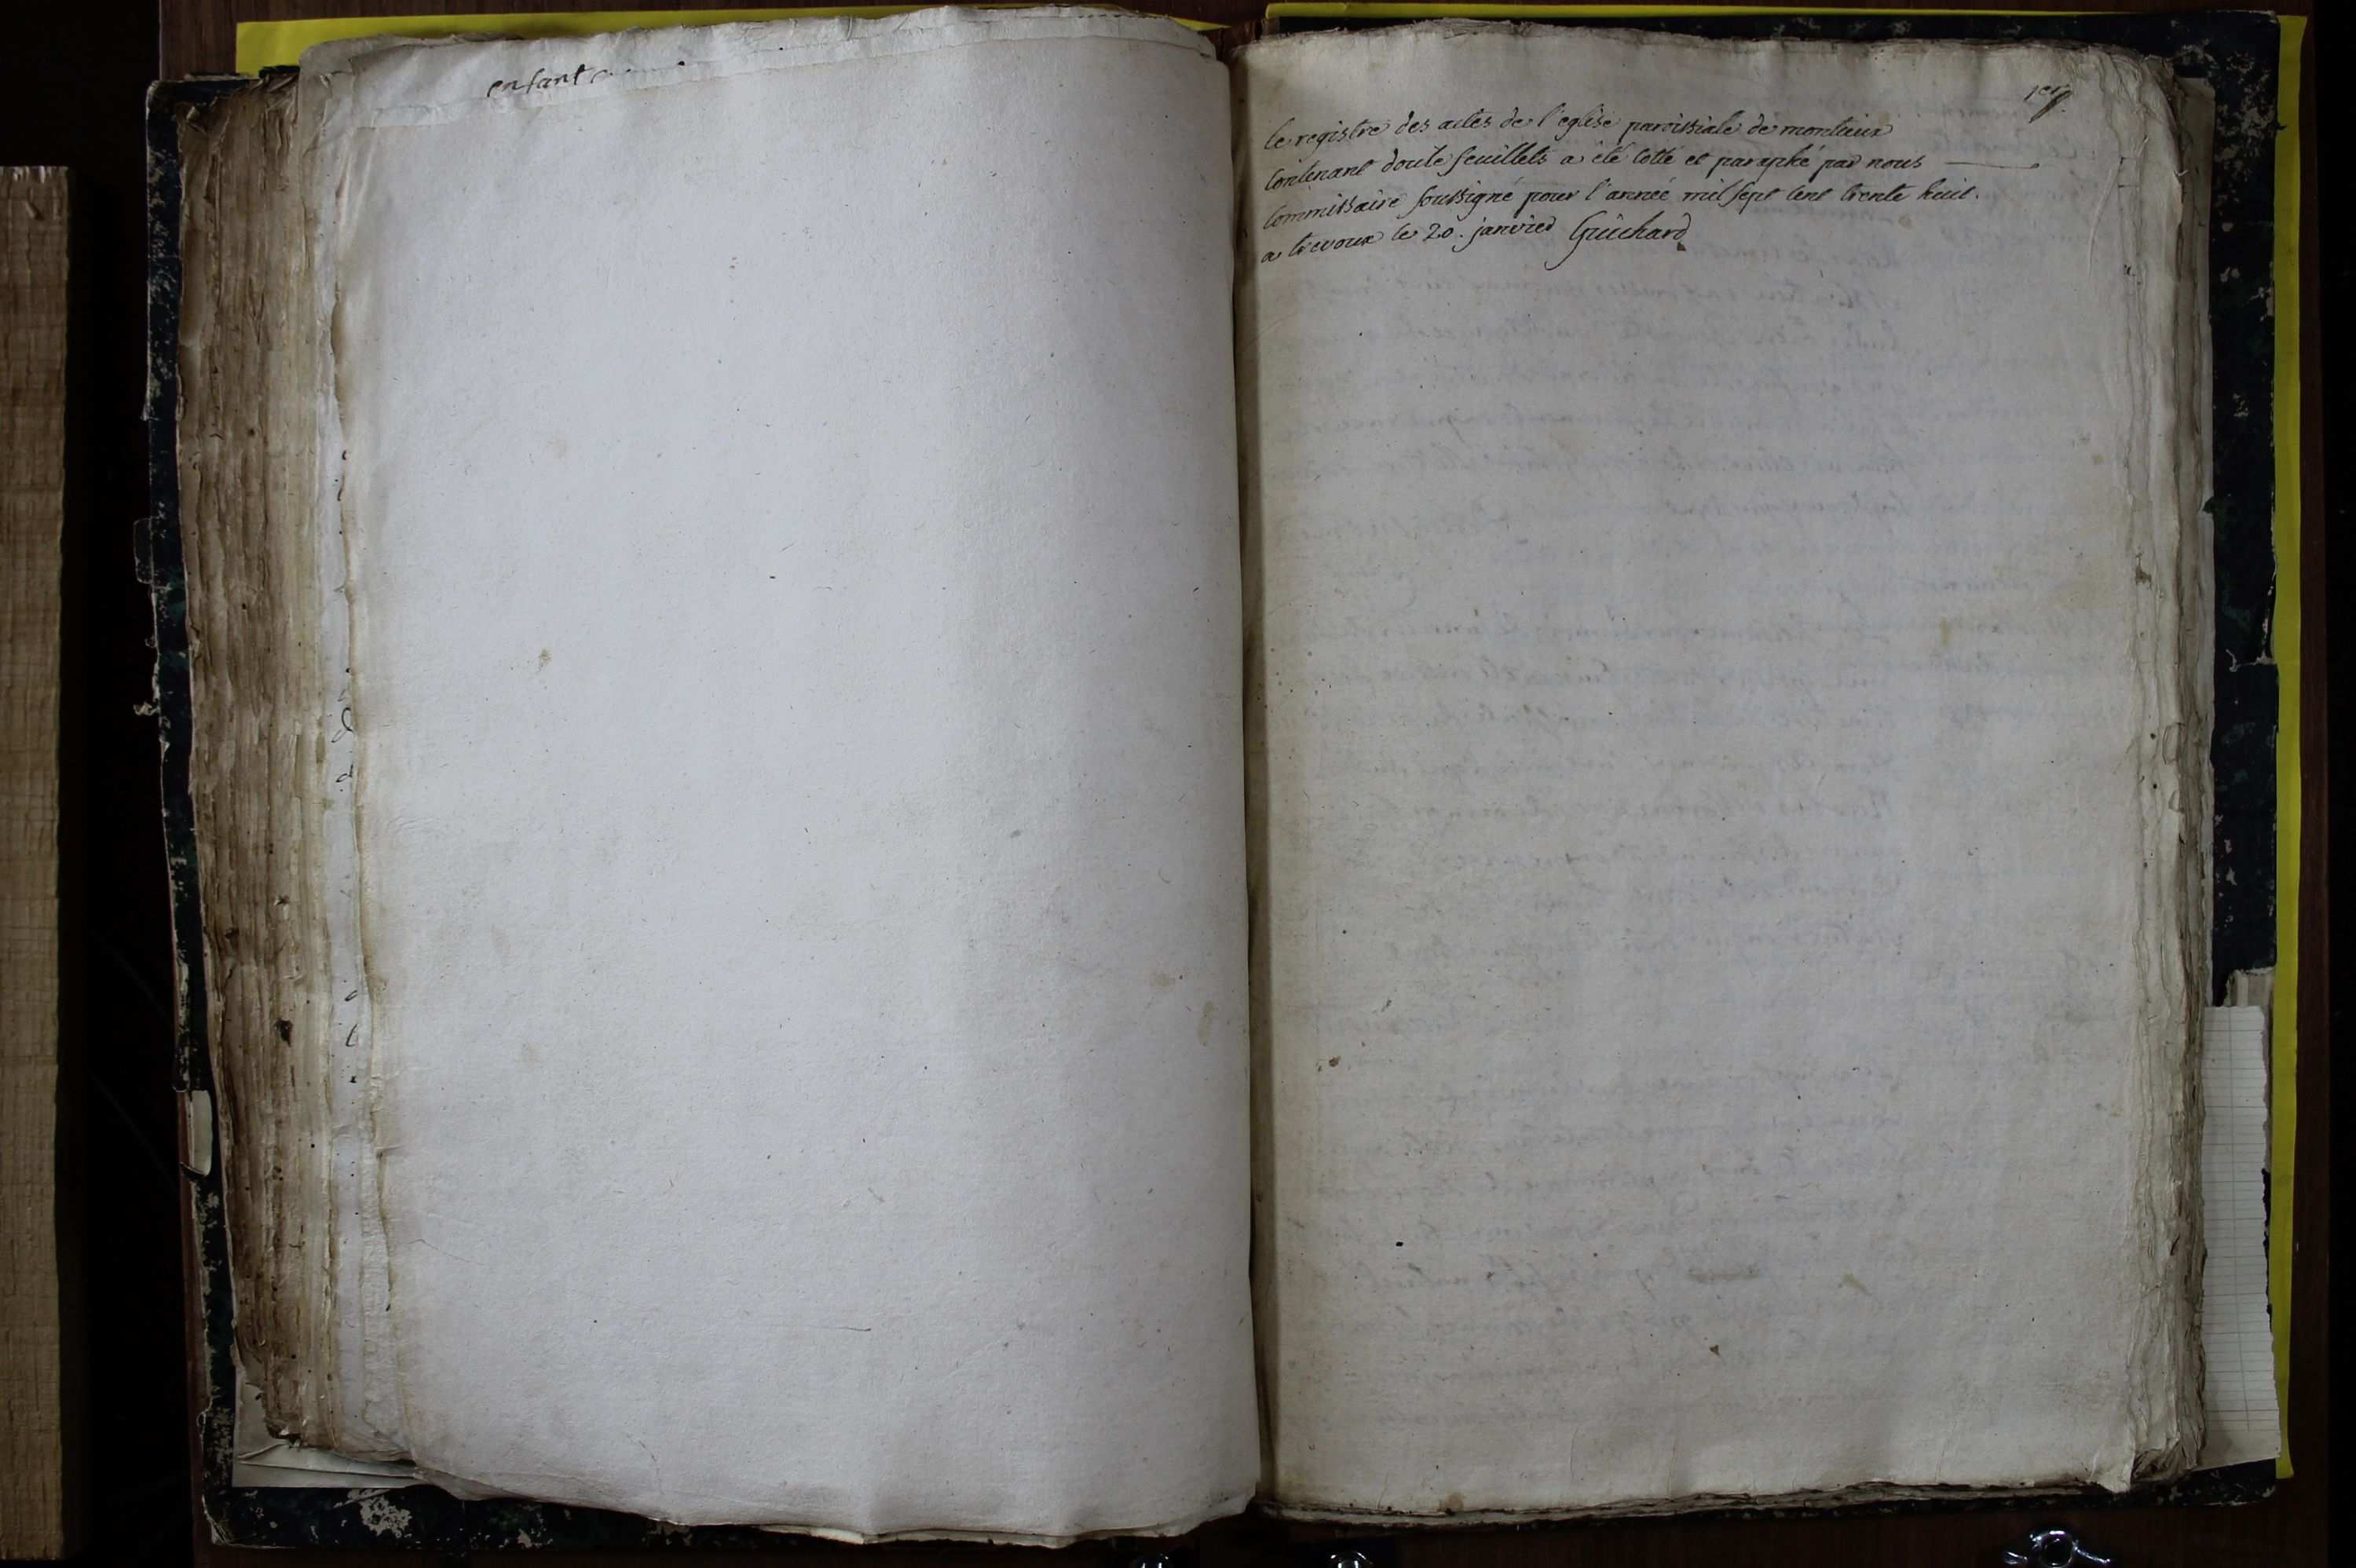 enfant
1er
le registre des actes de l'eglise paroissiale de montieux
contenant douze feuillets a été cotté et paraphé par nous
commissaire soussigné pour l'année mil sept cent trente huit.
a trevoux le 20. janvier Guichard